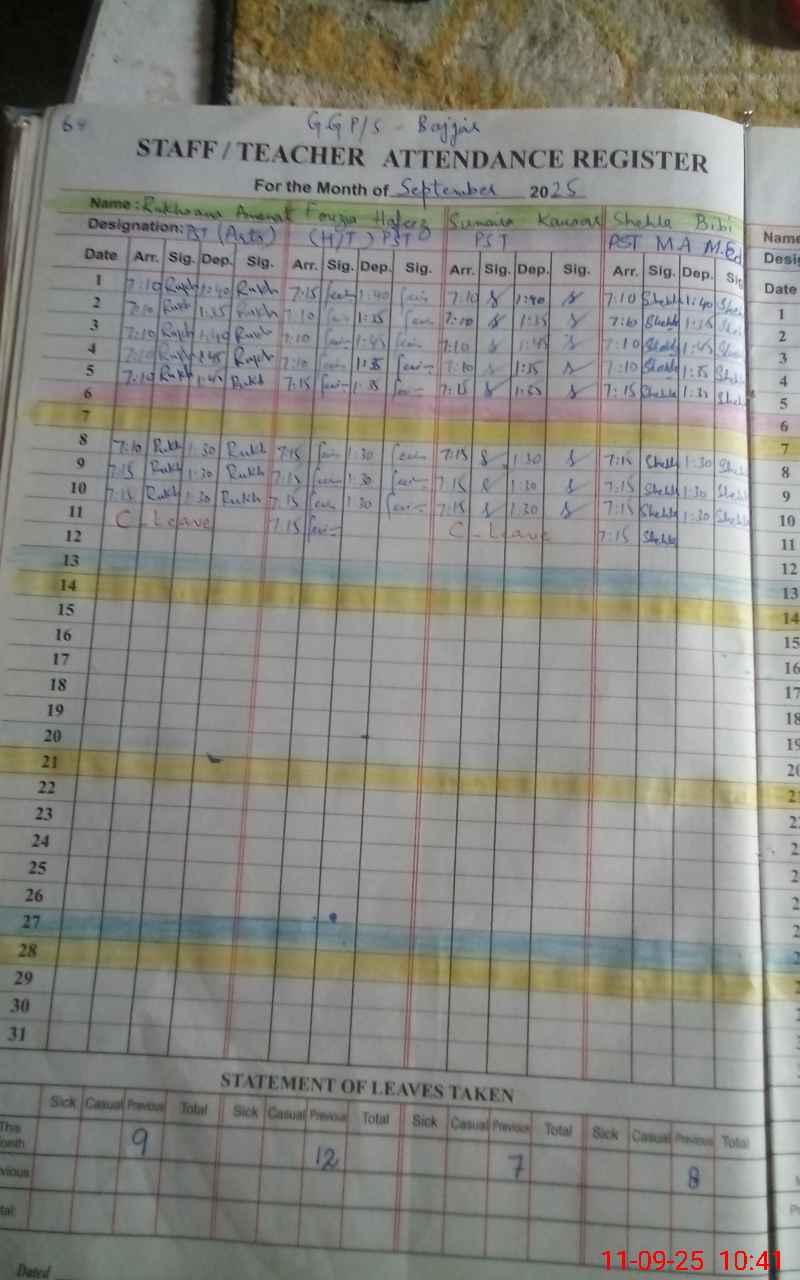 64 GGP/S - Bajjar
STAFF / TEACHER ATTENDANCE REGISTER
For the Month of September 2025
Name: Rukhsana Amanat Fouzia Hafeez Sumaira Kausar Shehla Bibi
Designation: PST (Arts) (H/T) PST PST PST M A M.Ed
Date Arr. Sig. Dep. Sig. Arr. Sig. Dep. Sig. Arr. Sig. Dep. Sig. Arr. Sig. Dep. Sig
1 7:10 Rukh 1:40 Rukh 7:15 1:40 7:10 1:40 7:10 Shehla 1:40 Sheh
2 7:10 Rukh 1:35 Rukh 7:10 1:35 7:10 1:35 7:10 Shehla 1:35 Sheh
3 7:10 Rukh 1:40 Rukh 7:10 1:45 7:10 1:45 7:10 Shehla 1:45 Sheh
4 7:10 Rukh 1:45 Rukh 7:10 1:35 7:10 1:35 7:10 Shehla 1:35 Sheh
5 7:10 Rukh 1:45 Rukh 7:15 1:35 7:15 1:35 7:15 Shehla 1:35 Sheh
6
7
8 7:10 Rukh 1:30 Rukh 7:15 1:30 7:15 1:30 7:15 Shehla 1:30 Sheh
9 7:15 Rukh 1:30 Rukh 7:15 1:30 7:15 1:30 7:15 Shehla 1:30 Shehla
10 7:15 Rukh 1:30 Rukh 7:15 1:30 7:15 1:30 7:15 Shehla 1:30 Shehla
11 C-Leave 7:15 C-Leave 7:15 Shehla
12
13
14
15
16
17
18
19
20
21
22
23
24
25
26
27
28
29
30
31
STATEMENT OF LEAVES TAKEN
Sick Casual Previous Total Sick Casual Previous Total Sick Casual Previous Total Sick Casual Previous Total
This
onth 9 12 7 8
vious
tal:
Dated
Name
Desig
Date
1
2
3
4
5
6
7
8
9
10
11
12
13
14
15
16
17
18
19
20
11-09-25 10:41